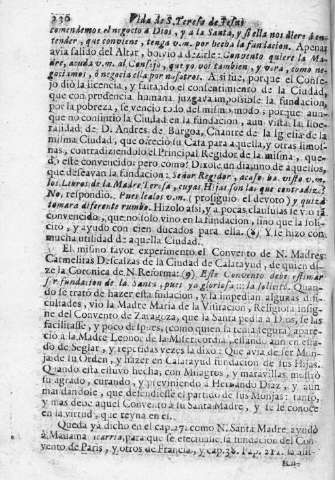 236 Vida de S. Teresa de Jesus
comendemos el negocio à Dios, y a la Santa, y si ella nos diere à en-
tender, que conviene, tenga v.m. por hecha la fundacion. Apenas
avia salido del Altar, bolviò à dezirle: Convento quiere la Ma-
dre, acuda v.m. al Consejo, que yo voi tambien, y verà, como ne-
gociamos, ò negocia ella por nosotros. Assi fue, porque el Conse-
jo diò la licencia, y faltando el consentimiento de la Ciudad,
que con prudencia humana juzgava impossible la fundacion,
por la pobreza, se venciò todo del mismo modo; porque aun-
que no consintiò la Ciudad en la fundacion, aun vista la libe-
ralidad de D. Andres de Burgoa, Chantre de la Iglesia de la
misma Ciudad, que ofreciò su Cata para aquella, y otras limos-
nas, contradiziendolo el Principal Regidor de la misma, que-
dò este convencido; pero como? Dixole un dia uno de aquellos,
que deseavan la fundacion: Señor Regidor, acaso ha visto v.m.
los Libros de la Madre Teresa, cuyas Hijas son las que contradize?
No, respondiò. Pues lealos v.m. (prosiguiò el devoto) y quizà
tomarà diferente rumbo. Hizolo assi, y a pocas clausulas se viò tà
convencido, que no solo vino en la fundacion, sino que la soli-
citò, y ayudò con cien ducados para ella. (8) Y se hizo con
mucha utilidad de aquella Ciudad.
El mismo favor experimentò el Convento de N. Madres
Carmelitas Descalzas de la Ciudad de Calatayud, de quien di-
ze la Coronica de N. Reforma: (9) Este Convento debe estimar
su fundacion de la Santa, pues ya gloriosa la solicitò. Quan-
do se tratò de hazer esta fundacion, y la impedian algunas difi-
cultades, viò la Madre Maria de la Visitacion, Religiosa insig-
ne del Convento de Zaragoza, que la Santa pedia à Dios, se las
facilitasse, y poco despues, (como quien la tenia segura) apare-
ciò a la Madre Leonor de la Misericordia, estando aun en esta-
do de Seglar, y repetidas vezes la dixo: Que avia de ser Mon-
ja de su Orden, y nazer en Calatayud fundacion de sus Hijas.
Quando esta estuvo hecha, con Milagros, y maravillas mostrò
su agrado, curando, y previniendo à Hernando Diaz, y aun
mandandole, que defendiesse el partido de sus Monjas: tanto,
y mas debe aquel Convento à su Santa Madre, y se le conoce
en la virtud, que reyna en el.
Queda yà dicho en el cap. 27. como N. Santa Madre ayudò
à Madama Acarria, para que se efectuasse la fundacion del Con-
vento de Paris, y otros de Francia, y cap. 36.